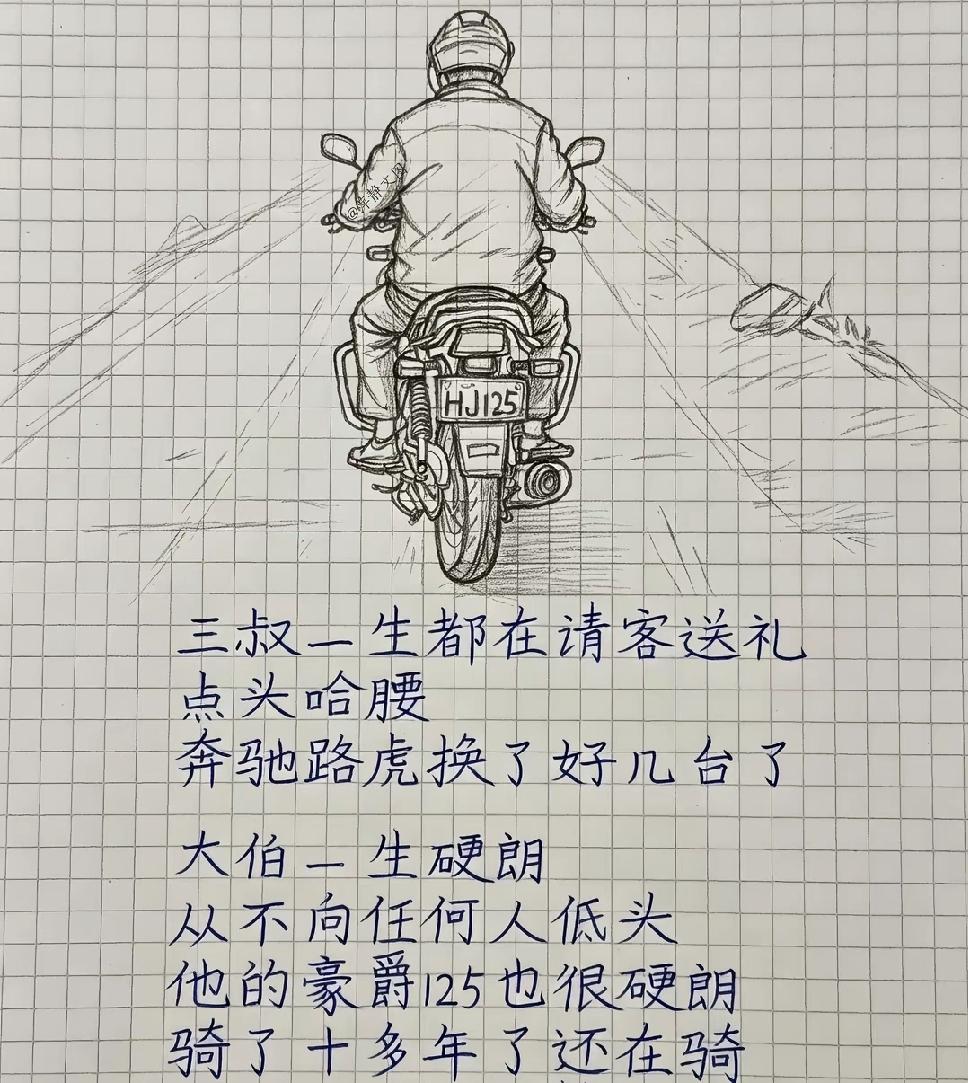 HJ125
三叔一生都在请客送礼
点头哈腰
奔驰路虎换了好几台了
大伯一生硬朗
从不向任何人低头
他的豪爵125也很硬朗
骑了十多年了还在骑